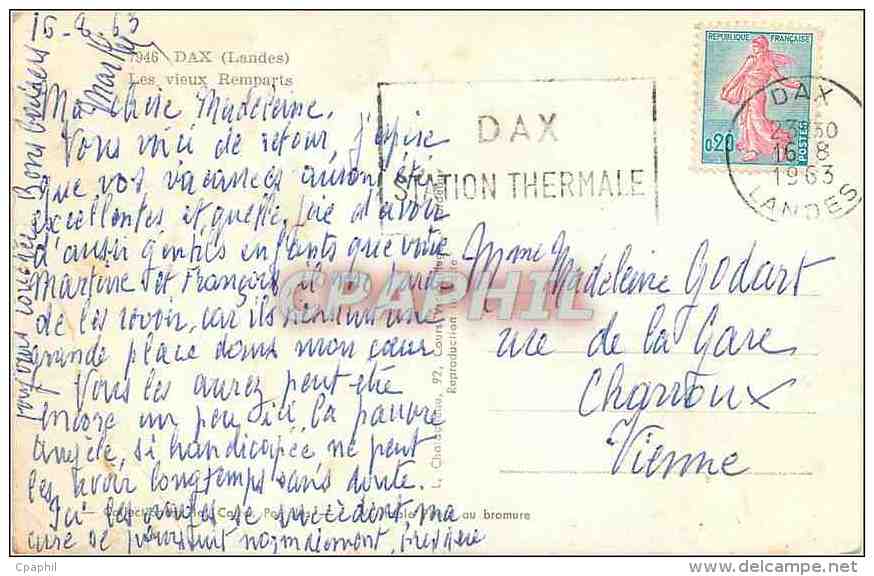 16-8-63
7946 DAX (Landes)
Les vieux Remparts
Ma chère Madeleine.
Vous voici de retour, j'espère
que vos vacances auront été
excellentes et quelle joie d'avoir
d'aussi gentils enfants que votre
Martine et François, il me tarde
de les revoir, car ils tiennent une
grande place dans mon cœur
Vous les aurez peut-être
encore un peu ici, la pauvre
Angèle, si handicapée ne peut
les avoir longtemps sans doute.
Ici les visites se succèdent, ma
cure se poursuit normalement,
Bons baisers
RÉPUBLIQUE FRANÇAISE
0,20
POSTES
DAX
STATION THERMALE
DAX
23-30
16-8
1963
LANDES
Mme Madeleine Godart
rue de la Gare
Charroux
Vienne
92, Cours
Reproduction
au bromure
CPAPHIL
Cpaphil
http://www.delcampe.net